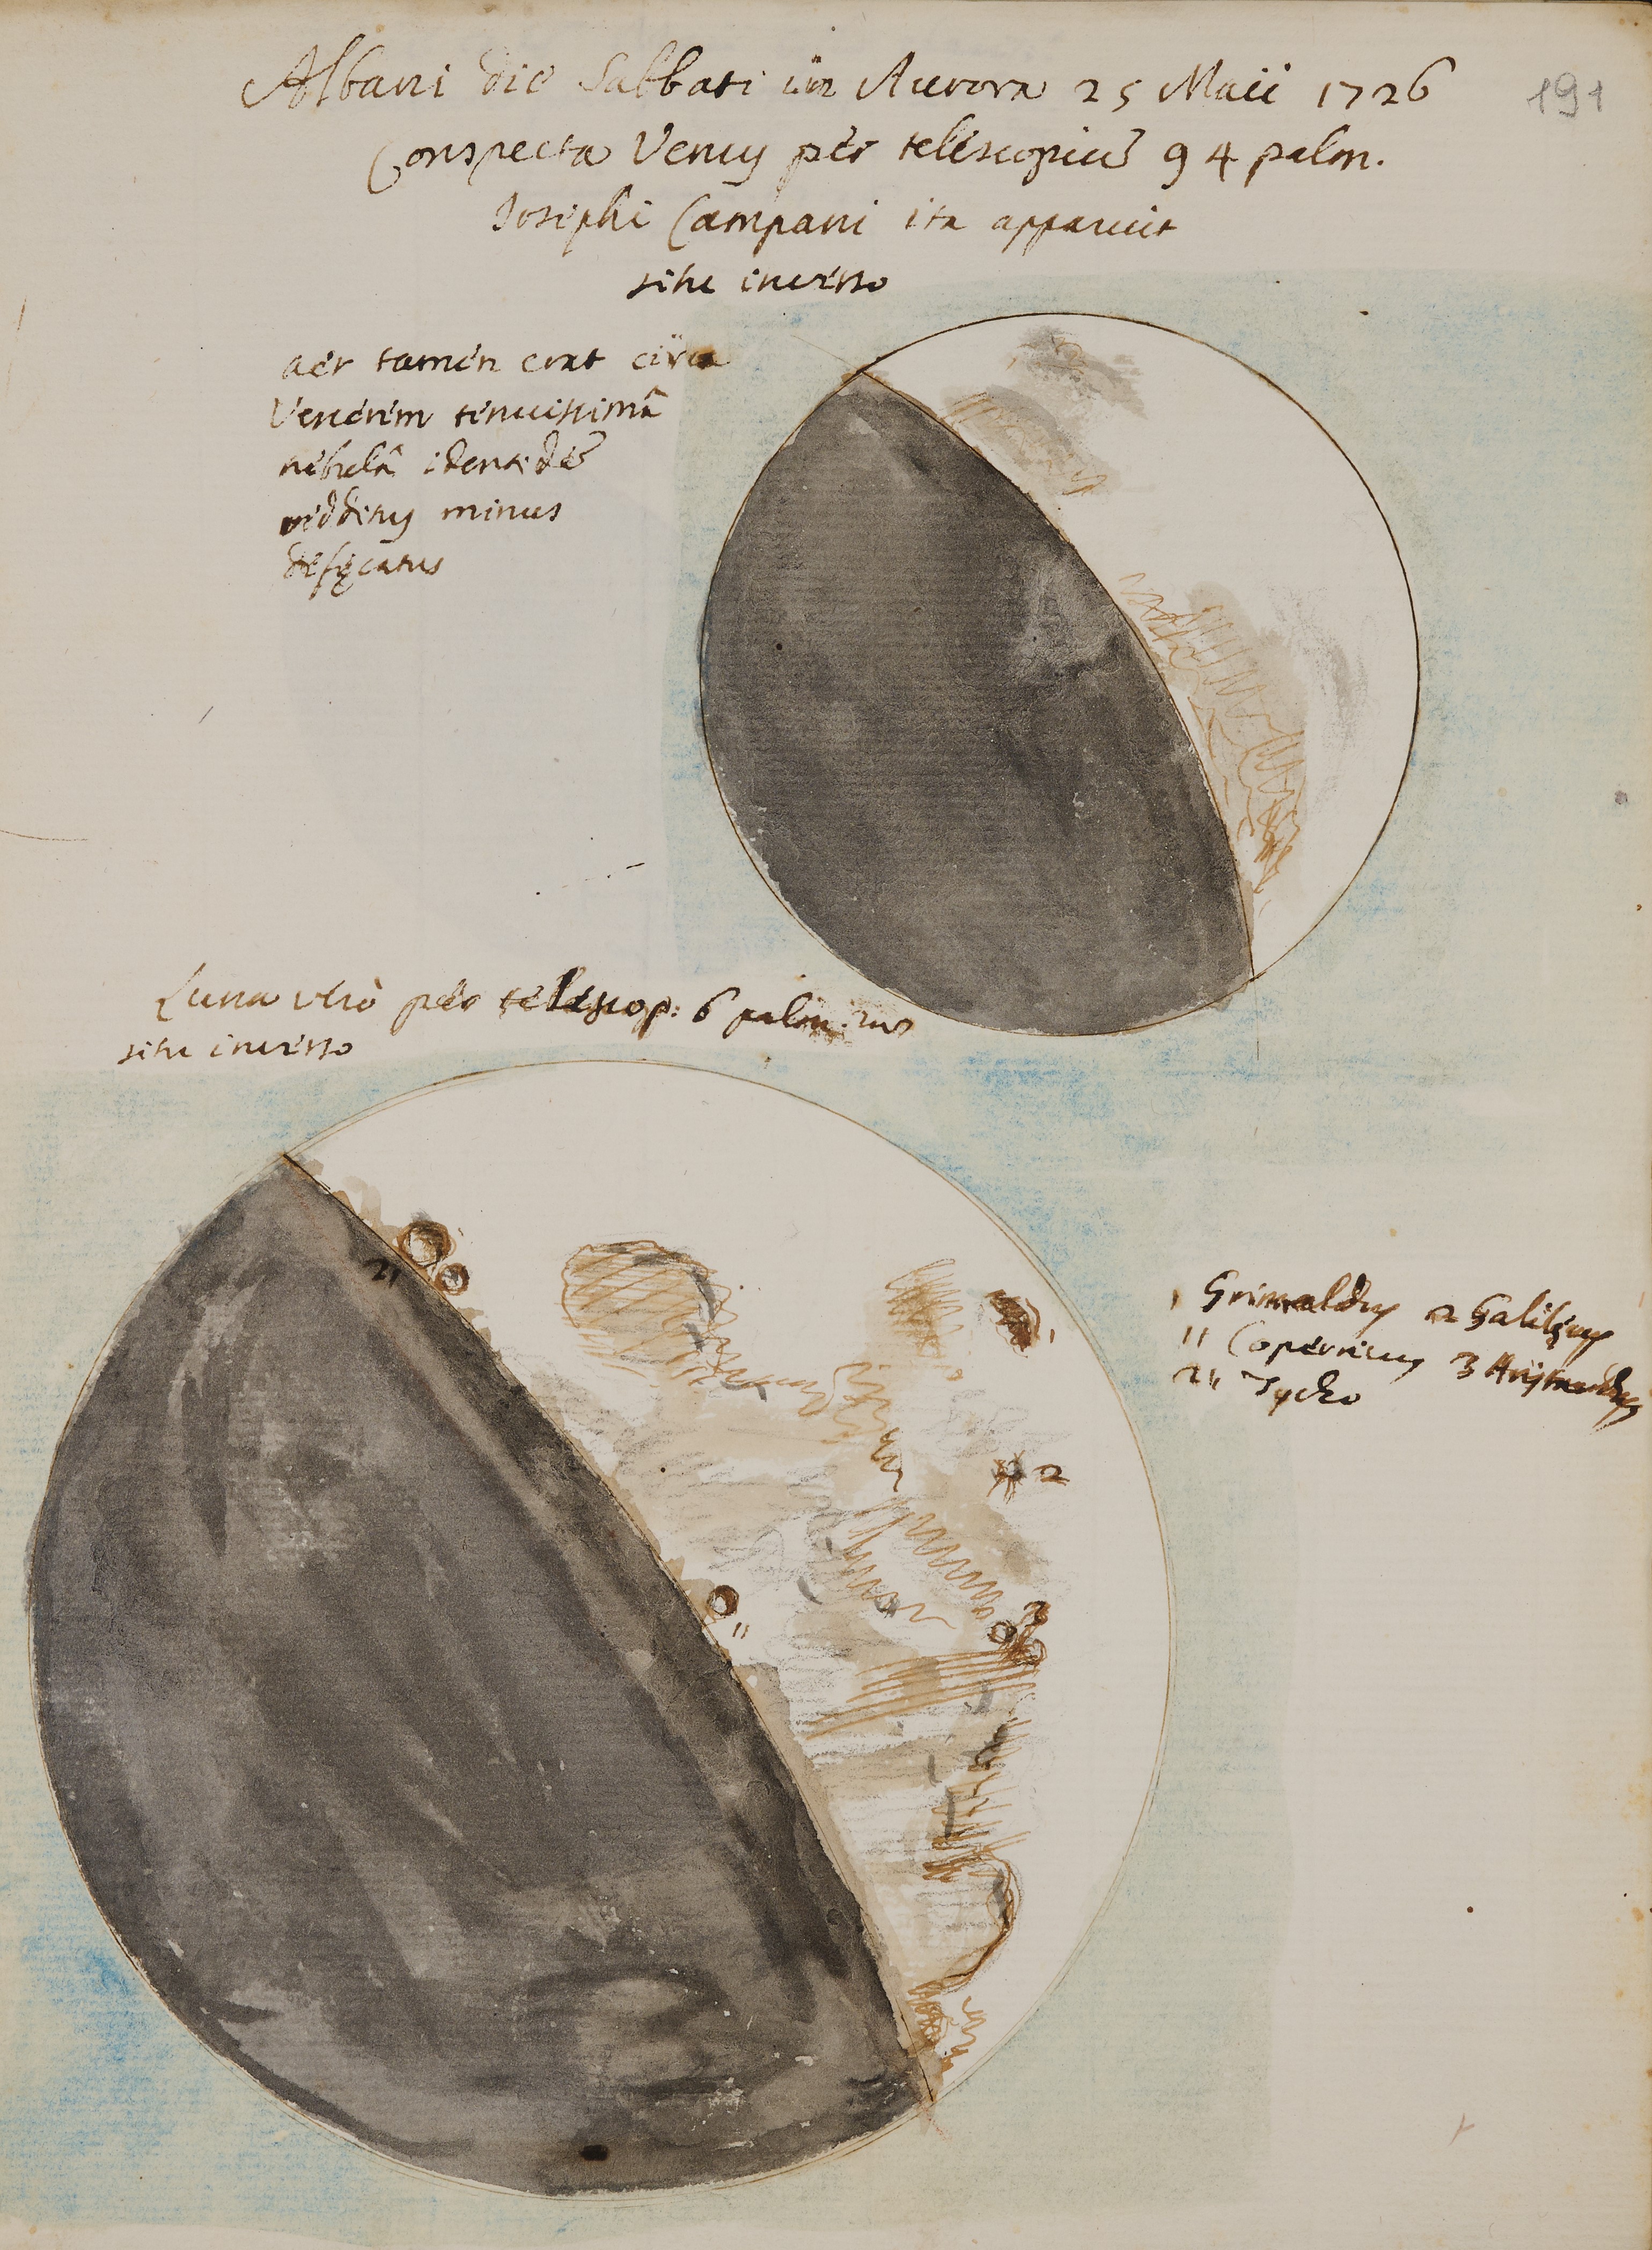 Albani die Sabbati in Aurora 25 Maii 1726
191
Conspecta Venus per telescopiũ 94 palm.
Josephi Campani ita apparuit
situ inverso
aer tamen erat circa
Venerem tenuissimâ
nebulâ identidẽ
redditus minus
defęcatus
Luna verò per telescop: 6 palm.
situ inverso
21
1
2
3
11
1 Grimaldus 2 Galilęus
11 Copernicus 3 Aristarchus
21 Tycho